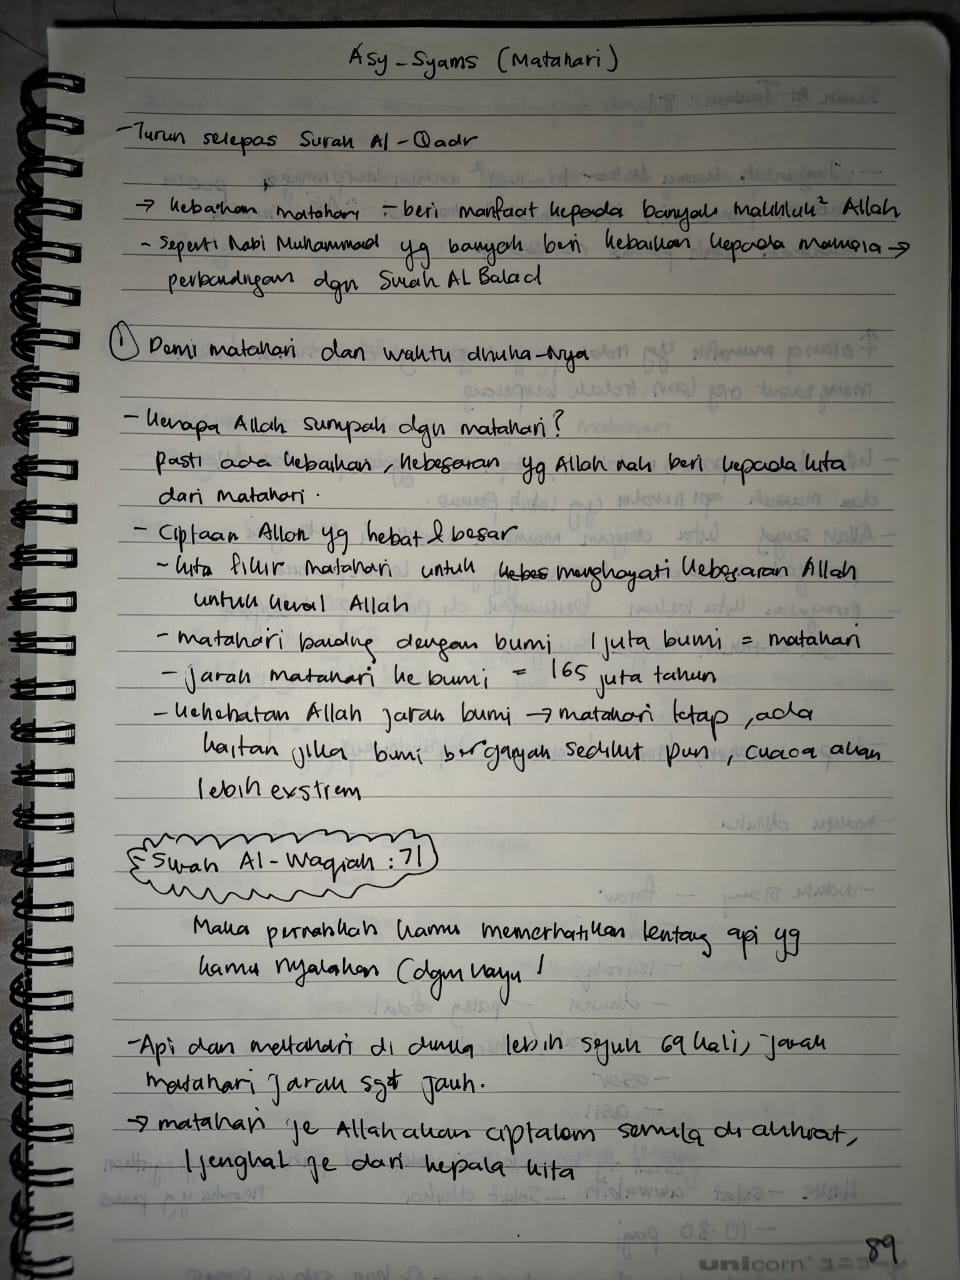 Asy-Syams (Matahari)
-Turun selepas Surah Al-Qadr
→ kebaikan matahari - beri manfaat kepada banyak makhluk² Allah
- seperti Nabi Muhammad yg banyak beri kebaikan kepada manusia →
perbandingan dgn Surah AL Balad
① Demi matahari dan waktu dhuha-Nya
- Kenapa Allah sumpah dgn matahari?
pasti ada kebaikan, kebesaran yg Allah nak beri kepada kita
dari matahari.
- Ciptaan Allah yg hebat & besar
- kita fikir matahari untuk kebes menghayati kebesaran Allah
untuk kenal Allah
- matahari banding dengan bumi 1 juta bumi = matahari
- jarak matahari ke bumi = 165 juta tahun
- kehebatan Allah jarak bumi → matahari tetap, ada
kaitan jika bumi bergerak sedikit pun, cuaca akan
lebih exstrem
Surah Al-Waqiah : 71
Maka pernahkah kamu memerhatikan tentang api yg
kamu nyalakan (dgn kayu)
-Api dan matahari di dunia lebih sejuk 69 kali, jarak
matahari jarak sgt jauh.
→ matahari je Allah akan ciptakan semula di akhirat,
1 jengkal je dari kepala kita
89
unicorn